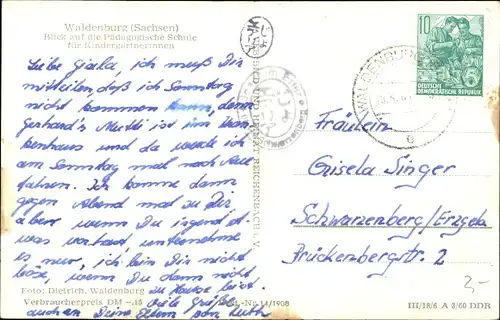 Waldenburg (Sachsen)
Blick auf die Pädagogische Schule
für Kindergärtnerinnen
Liebe Gisela, ich muß Dir
mitteilen, daß ich Sonntag
nicht kommen kann, denn
Gerhard's Mutti ist im Kran-
kenhaus und da werde ich
am Sonntag mal nach Aue
fahren. Ich komme dann
gegen Abend mal zu Dir
aber wenn Du irgend et-
was vorhast, unternehme
es nur, ich bin Dir nicht
böse, wenn Du dann nicht
zu Hause bist.
Viele Grüße
auch an Deine Eltern von Ruth
Foto: Dietrich, Waldenburg
Verbraucherpreis DM -,15
Best.-Nr. 14/1908
BILD UND HEIMAT REICHENBACH I. V.
WALDENBURG
10
DEUTSCHE
DEMOKRATISCHE REPUBLIK
Fräulein
Gisela Singer
Schwarzenberg/Erzgeb.
Brückenbergstr. 2
3,-
III/18/6 A 3/60 DDR